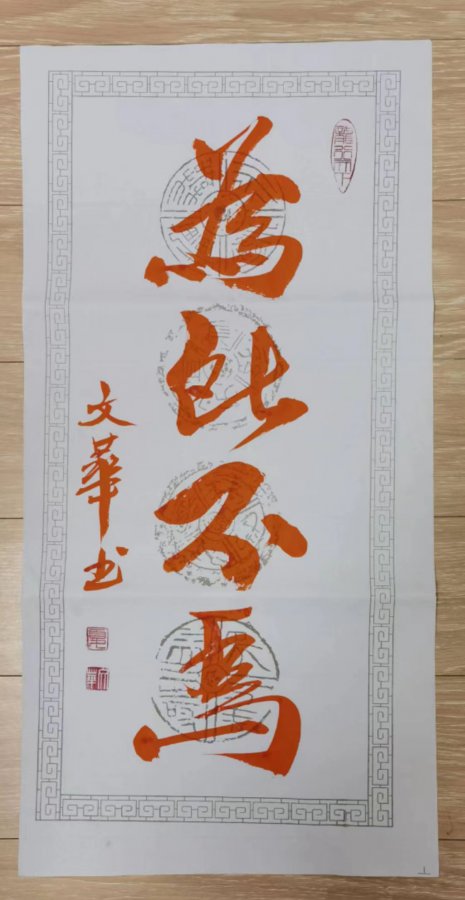 為此不焉
文華书